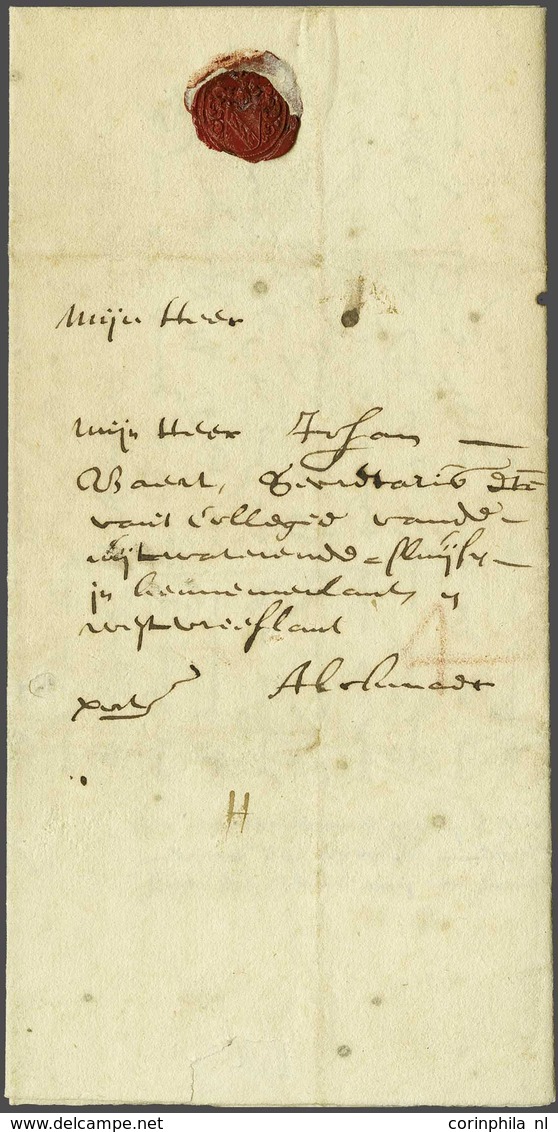 Mijn Heer
Mijn Heer Johan
Baert, Secretaris
vant Collegie vande
uijtwaterende sluijsen
in kennemerlant en
westvrieslant
Alckmaer
port
H
corinphila nl